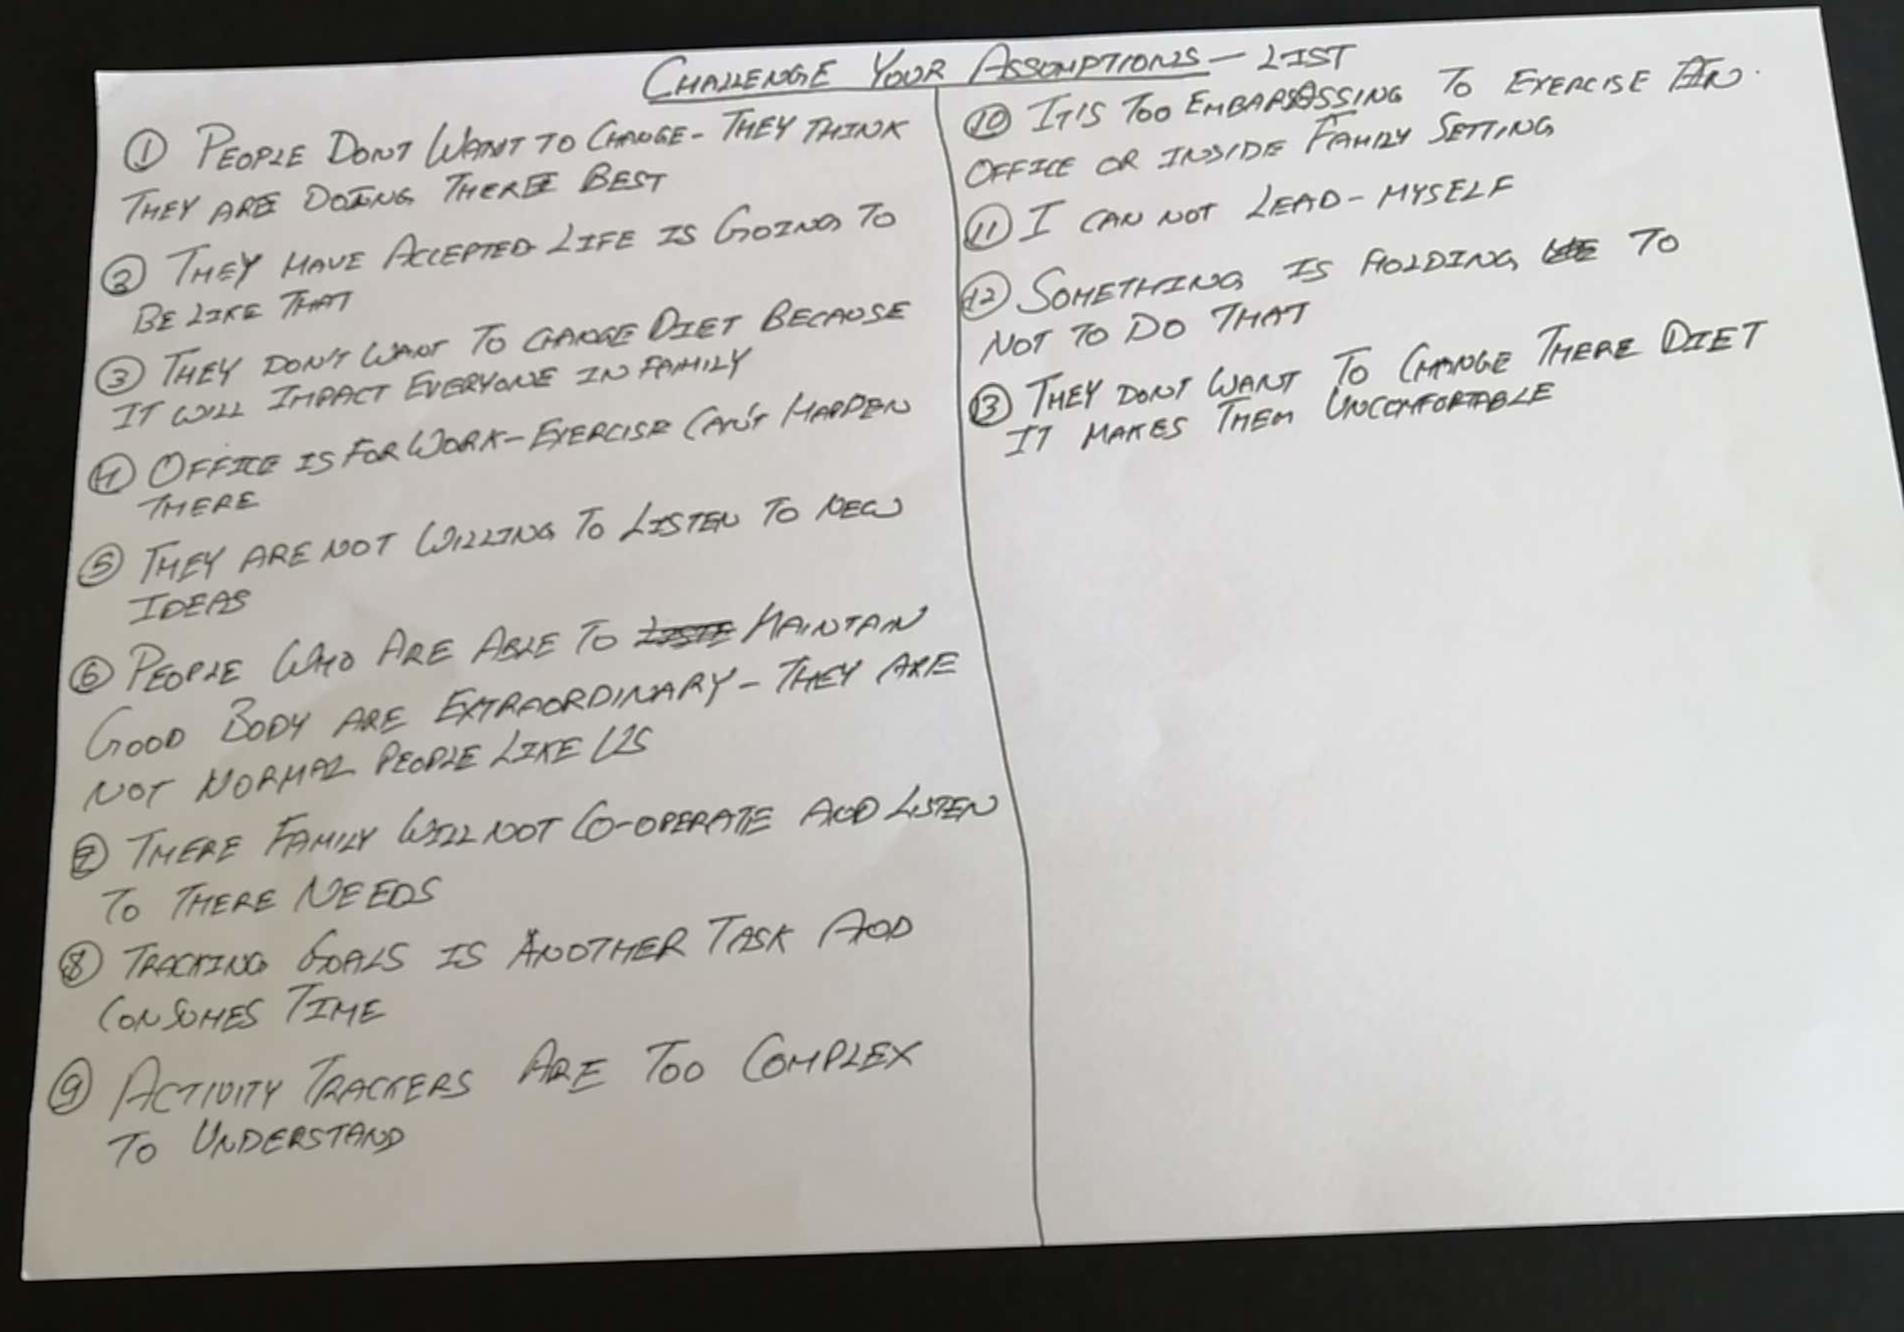 CHALLENGE YOUR ASSUMPTIONS - LIST
① PEOPLE DONT WANT TO CHANGE - THEY THINK
THEY ARE DOING THERE BEST
② THEY HAVE ACCEPTED LIFE IS GOING TO
BE LIKE THAT
③ THEY DON'T WANT TO CHANGE DIET BECAUSE
IT WILL IMPACT EVERYONE IN FAMILY
④ OFFICE IS FOR WORK - EXERCISE CAN'T HAPPEN
THERE
⑤ THEY ARE NOT WILLING TO LISTEN TO NEW
IDEAS
⑥ PEOPLE WHO ARE ABLE TO MAINTAIN
GOOD BODY ARE EXTRAORDINARY - THEY ARE
NOT NORMAL PEOPLE LIKE US
⑦ THERE FAMILY WILL NOT CO-OPERATE AND LISTEN
TO THERE NEEDS
⑧ TRACKING GOALS IS ANOTHER TASK AND
CONSUMES TIME
⑨ ACTIVITY TRACKERS ARE TOO COMPLEX
TO UNDERSTAND
⑩ IT'S TOO EMBARASSING TO EXERCISE IN
OFFICE OR INSIDE FAMILY SETTING
⑪ I CAN NOT LEAD - MYSELF
⑫ SOMETHING IS HOLDING TO
NOT TO DO THAT
⑬ THEY DONT WANT TO CHANGE THERE DIET
IT MAKES THEM UNCOMFORTABLE